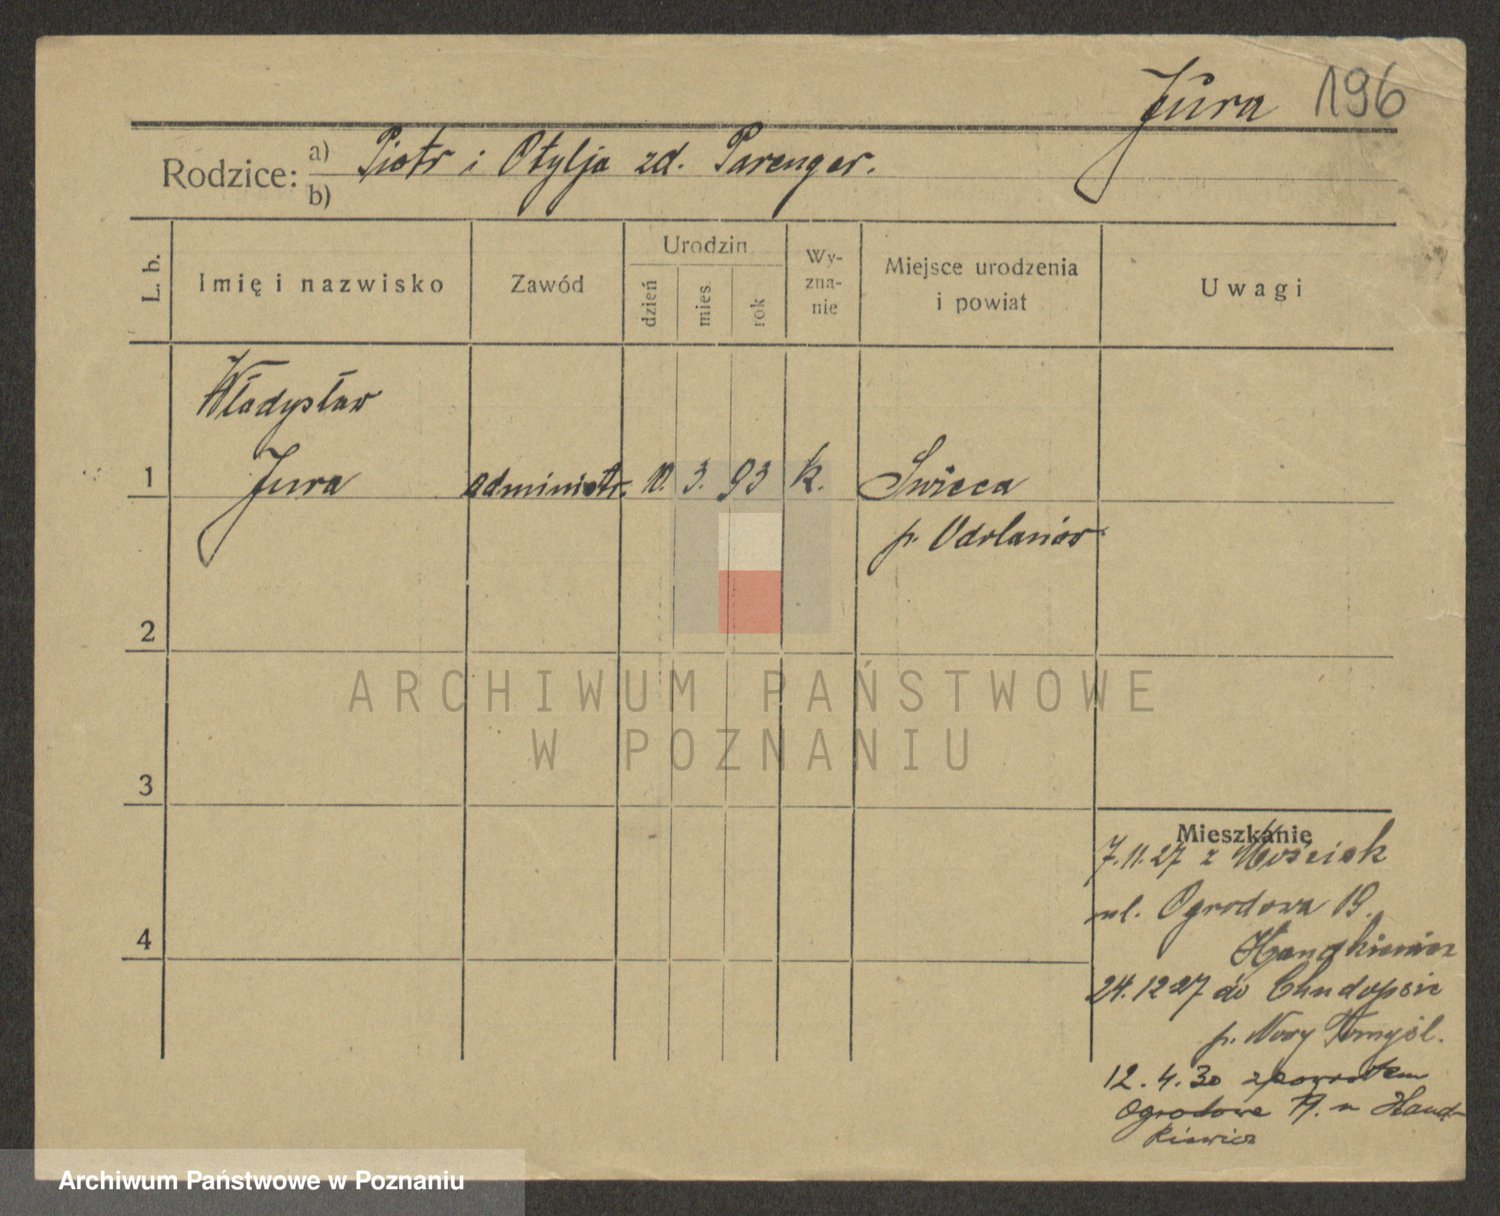 Jura 196
Rodzice: a) Piotr i Otylja zd. Parenger.
b)
L. b. Imię i nazwisko Zawód Urodzin dzień mies. rok Wy-zna-nie Miejsce urodzenia i powiat Uwagi
Władysław
1 Jura administr. 10. 3. 93 k. Świeca
p. Odolanów
2
ARCHIWUM PAŃSTWOWE
W POZNANIU
3
Mieszkanie
7.11.27 z Mościsk
ul. Ogrodowa 19.
Handkiewicz
24.12 27 do
p. Nowy Tomyśl.
4
12. 4. 30 zpowrotem
Ogrodowa 19. u Hand-
kiewicz
Archiwum Państwowe w Poznaniu